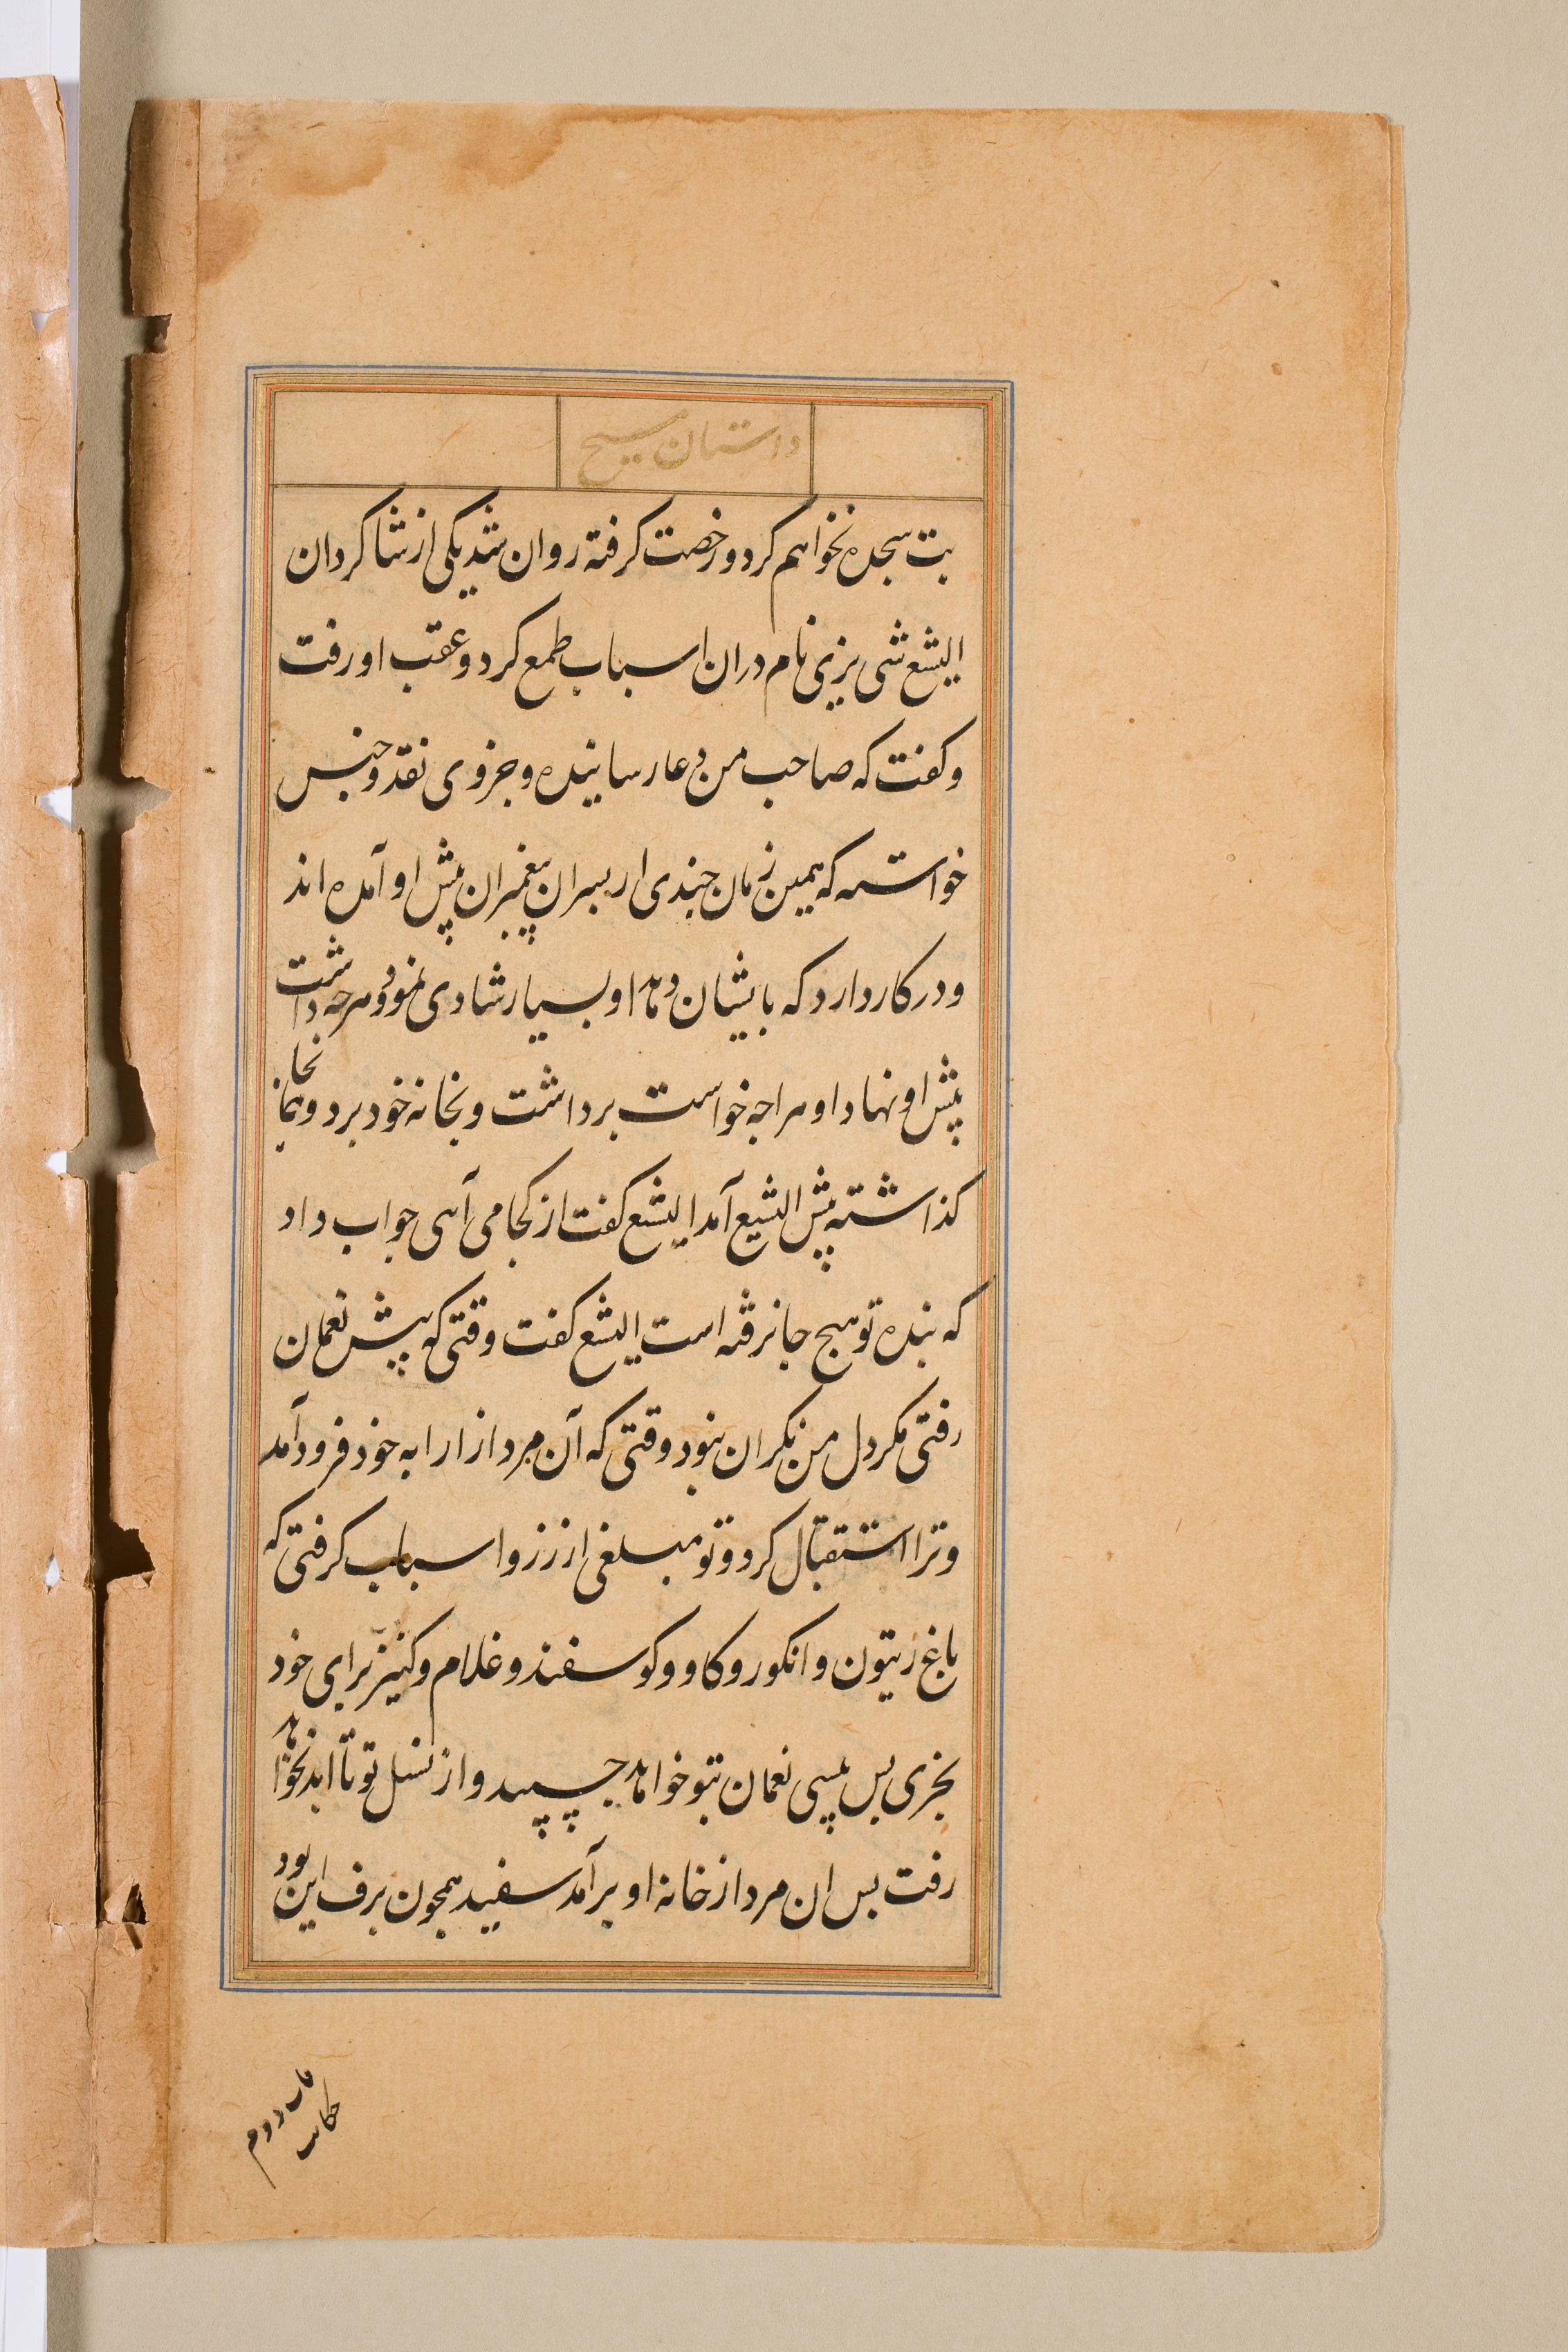 داستان مسیح
بت سجده نخواهم کرد و رخصت کرفته روان شد یکی از شاکردان
الیشع شی یزی نام دران اسباب طمع کرد و عقب او رفت
و کفت که صاحب من دعا رسانیده و جزوی نقد و جنس
خواسته که همین زمان جندی از پسران پیغمبران پیش او آمده اند
و در کار دارد که بایشان دهد او بسیار شادی نمود و هرجه داشت
پیش او نهاد او هراجه خواست برداشت و بخانه خود برد و بخانه
کذاشته پیش الیشع آمد الیشع کفت از کجا می آهی جواب داد
که بنده تو هیج جا نرفته است الیشع کفت وقتی کو پیش نعمان
رفتی مکر دل من نکران نبود وقتی که آن مرد از ارابه خود فرود آمد
و ترا استقبال کرد و تو مبلغی از زر و اسباب کرفتی که
باغ زیتون و انکور و کاو و کوسفند و غلام و کنیز برای خود
بخری پس پیسی نعمان بتو خواهد جسپید و از نسل تو تا ابد نخواهد
رفت پس ان مرد از خانه او برآمد سفید همجون برف این بود